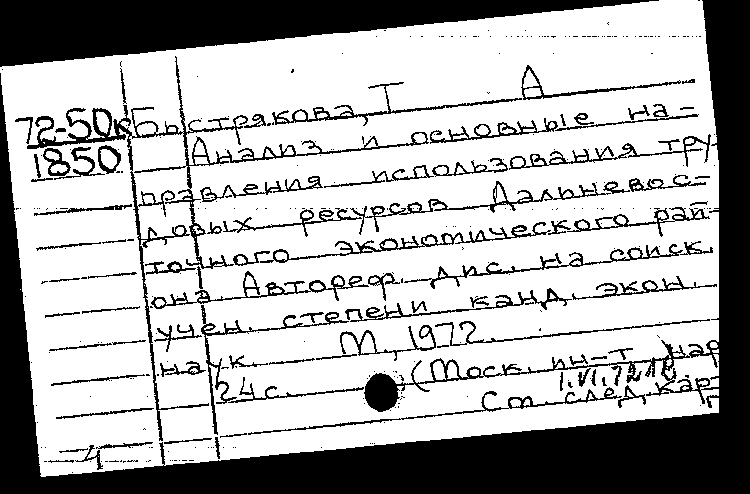 72-50к Быстрякова, Т А
1850 Анализ и основные на-
правления использования тру-
довых ресурсов Дальневос-
точного экономического рай-
она. Автореф. дис. на соиск.
учен. степени канд. экон.
наук. М., 1972.
24 с. (Моск. ин-т нар
1.VI.72
См. след. кар-
4